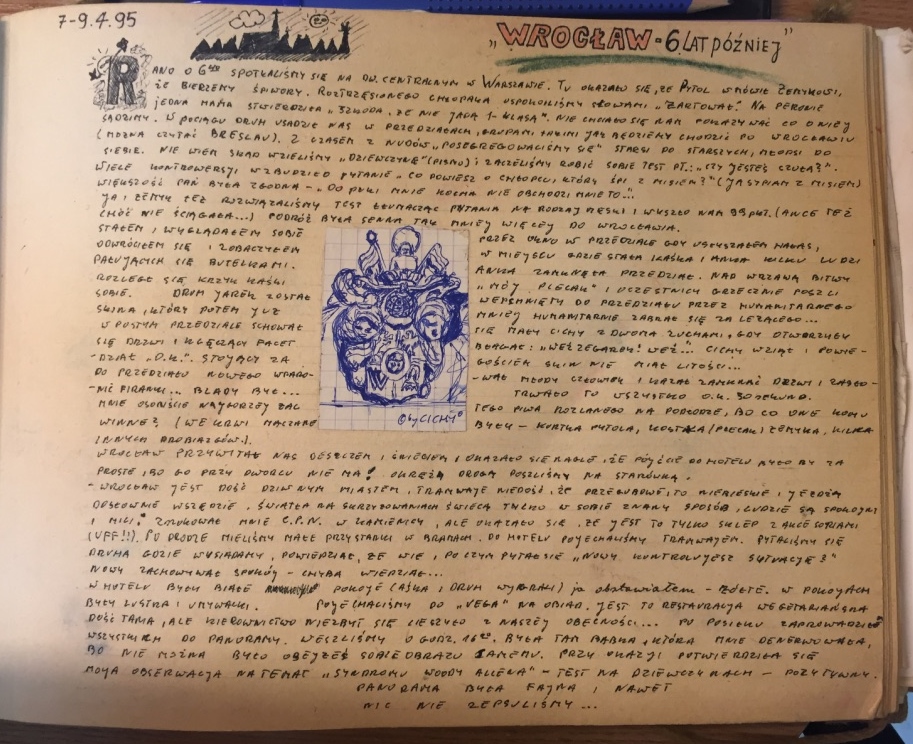 7-9.4.95
"WROCŁAW - 6 LAT PÓŹNIEJ"
RANO O 6 SPOTKALIŚMY SIĘ NA DW. CENTRALNYM W WARSZAWIE. TU OKAZAŁO SIĘ, ŻE PYTOL WMÓWIŁ ZEMYKOWI,
ŻE BIERZEMY ŚPIWORY. ROZTRZĘSIONEGO CHŁOPAKA USPOKOILIŚMY SŁOWAMI "ŻARTOWAŁ". NA PERONIE
JEDNA MAMA STWIERDZIŁA "SZKODA, ŻE NIE JADĄ 1-KLASĄ". NIE CHCIAŁO SIĘ NAM POKAZYWAĆ CO O NIEJ
SĄDZIMY. W POCIĄGU DRUH USADZIŁ NAS W PRZEDZIAŁACH, GRUPAMI, TAKIMI JAK BĘDZIEMY CHODZIĆ PO WROCŁAWIU
(MOŻNA CZYTAĆ BRESLAU). Z CZASEM Z NUDÓW "POSEGREGOWALIŚMY SIĘ" STARSI DO STARSZYCH, MŁODSI DO
SIEBIE. NIE WIEM SKĄD WZIĘLIŚMY "DZIEWCZYNĘ" (PISMO) I ZACZĘLIŚMY ROBIĆ SOBIE TEST PT.: "CZY JESTEŚ CZUŁA?".
WIELE KONTROWERSJI WZBUDZIŁO PYTANIE "CO POWIESZ O CHŁOPCU, KTÓRY ŚPI Z MISIEM?" (JA SYPIAM Z MISIEM)
WIĘKSZOŚĆ PAŃ BYŁA ZGODNA - "DO PUKI MNIE KOCHA NIE OBCHODZI MNIE TO..."
JA I ZEMYK TEŻ ROZWIĄZALIŚMY TEST TŁUMACZĄC PYTANIA NA RODZAJ MĘSKI I WYSZŁO NAM 99 PKT. (ANCE TEŻ
CHOĆ NIE ŚCIĄGAŁA...) PODRÓŻ BYŁA SENNA TAK MNIEJ WIĘCEJ DO WROCŁAWIA.
STAŁEM I WYGLĄDAŁEM SOBIE PRZEZ OKNO W PRZEDZIALE GDY USŁYSZAŁEM HAŁAS,
ODWRÓCIŁEM SIĘ I ZOBACZYŁEM W MIEJSCU GDZIE STAŁA KAŚKA I ANKA KILKU LUDZI
PAŁUJĄCYCH SIĘ BUTELKAMI. ANKA ZAMKNĘŁA PRZEDZIAŁ. NAD WRZAWĄ BITWY
ROZLEGŁ SIĘ KRZYK KAŚKI "MÓJ PLECAK" I UCZESTNICY GRZECZNIE POSZLI
SOBIE. DRUH JAREK ZOSTAŁ WEPCHNIĘTY DO PRZEDZIAŁU PRZEZ HUMANITARNEGO
SKINA, KTÓRY POTEM JUŻ MNIEJ HUMANITARNIE ZABRAŁ SIĘ ZA LEŻĄCEGO...
W PUSTYM PRZEDZIALE SCHOWAŁ SIĘ MAŁY CICHY Z DWOMA ZUCHAMI, GDY OTWORZYŁY
SIĘ DRZWI I KLĘCZĄCY FACET BŁAGAŁ: "WEŹ ZEGAREK! WEŹ"... CICHY WZIĄŁ I POWIE-
-DZIAŁ "O.K.". STOJĄCY ZA GOŚCIEM SKIN NIE MIAŁ LITOŚCI...
DO PRZEDZIAŁU NOWEGO WPARO- -WAŁ MŁODY CZŁOWIEK I KAZAŁ ZAMKNĄĆ DRZWI I ZASŁO-
-NIĆ FIRANKI... BLADY BYŁ... TRWAŁO TO WSZYSTKO O.K. 30 SEKUND.
MNIE OSOBIŚCIE NAJGORZEJ ŻAL TEGO PIWA ROZLANEGO NA PODŁODZE, BO CO ONE KOMU
WINNE? (WE KRWI MACZANE BYŁY - KURTKA PYTOLA, KOSTKA (PLECAK) ZEMYKA, KILKA
INNYCH DROBIAZGÓW.).
© by CICHY
WROCŁAW PRZYWITAŁ NAS DESZCZEM I ŚNIEGIEM I OKAZAŁO SIĘ NAGLE, IŻ PÓJŚCIE DO MOTELU BYŁO BY ZA
PROSTE, BO GO PRZY DWORCU NIE MA! OKRĘŻĄ DROGĄ POSZLIŚMY NA STANÓWKĘ.
-WROCŁAW JEST DOŚĆ DZIWNYM MIASTEM, TRAMWAJE NIEDOŚĆ, ŻE PRZEGUBOWE, TO NIEBIESKIE I JEŻDŻĄ
DOSŁOWNIE WSZĘDZIE. ŚWIATŁA NA SKRZYŻOWANIACH ŚWIECĄ TYLKO W SOBIE ZNANY SPOSÓB, LUDZIE SĄ SPOKOJNI
I MILI. ZSZOKOWAŁ MNIE C.P.N. W KAMIENICY, ALE OKAZAŁO SIĘ, ŻE JEST TO TYLKO SKLEP Z AKCESORIAMI
(UFF!!). PO DRODZE MIELIŚMY MAŁE PRZYSTANKI W BRAMACH. DO MOTELU POJECHALIŚMY TRAMWAJEM. PYTALIŚMY SIĘ
DRUHA GDZIE WYSIADAMY, POWIEDZIAŁ, ŻE WIE, PO CZYM PYTAŁ SIĘ "NOWY KONTROLUJESZ SYTUACJĘ?"
NOWY ZACHOWYWAŁ SPOKÓJ - CHYBA WIEDZIAŁ...
W MOTELU BYŁY BIAŁE POKOJE (AŚKA I DRUH WYBRALI) ja obstawiałem - ŻÓŁTE. W POKOJACH
BYŁY LUSTRA I UMYWALKI. POJECHALIŚMY DO "VEGA" NA OBIAD. JEST TO RESTAURACJA WEGETARIAŃSKA
DOŚĆ TANIA, ALE KIEROWNICTWO NIEZBYT SIĘ CIESZYŁO Z NASZEJ OBECNOŚCI... PO POSIŁKU ZAPROWADZIŁO
WSZYSTKICH DO PANORAMY. WESZLIŚMY O GODZ. 16. BYŁA TAM BABKA, KTÓRA MNIE DENERWOWAŁA,
BO NIE MOŻNA BYŁO OBEJŻEĆ SOBIE OBRAZU SAMEMU. PRZY OKAZJI POTWIERDZIŁA SIĘ
MOJA OBSERWACJA NA TEMAT "SYNDROMU WOODY ALLENA" - TEST NA DZIEWCZYNACH - POZYTYWNY.
PANORAMA BYŁA FAJNA I NAWET
NIC NIE ZEPSULIŚMY...